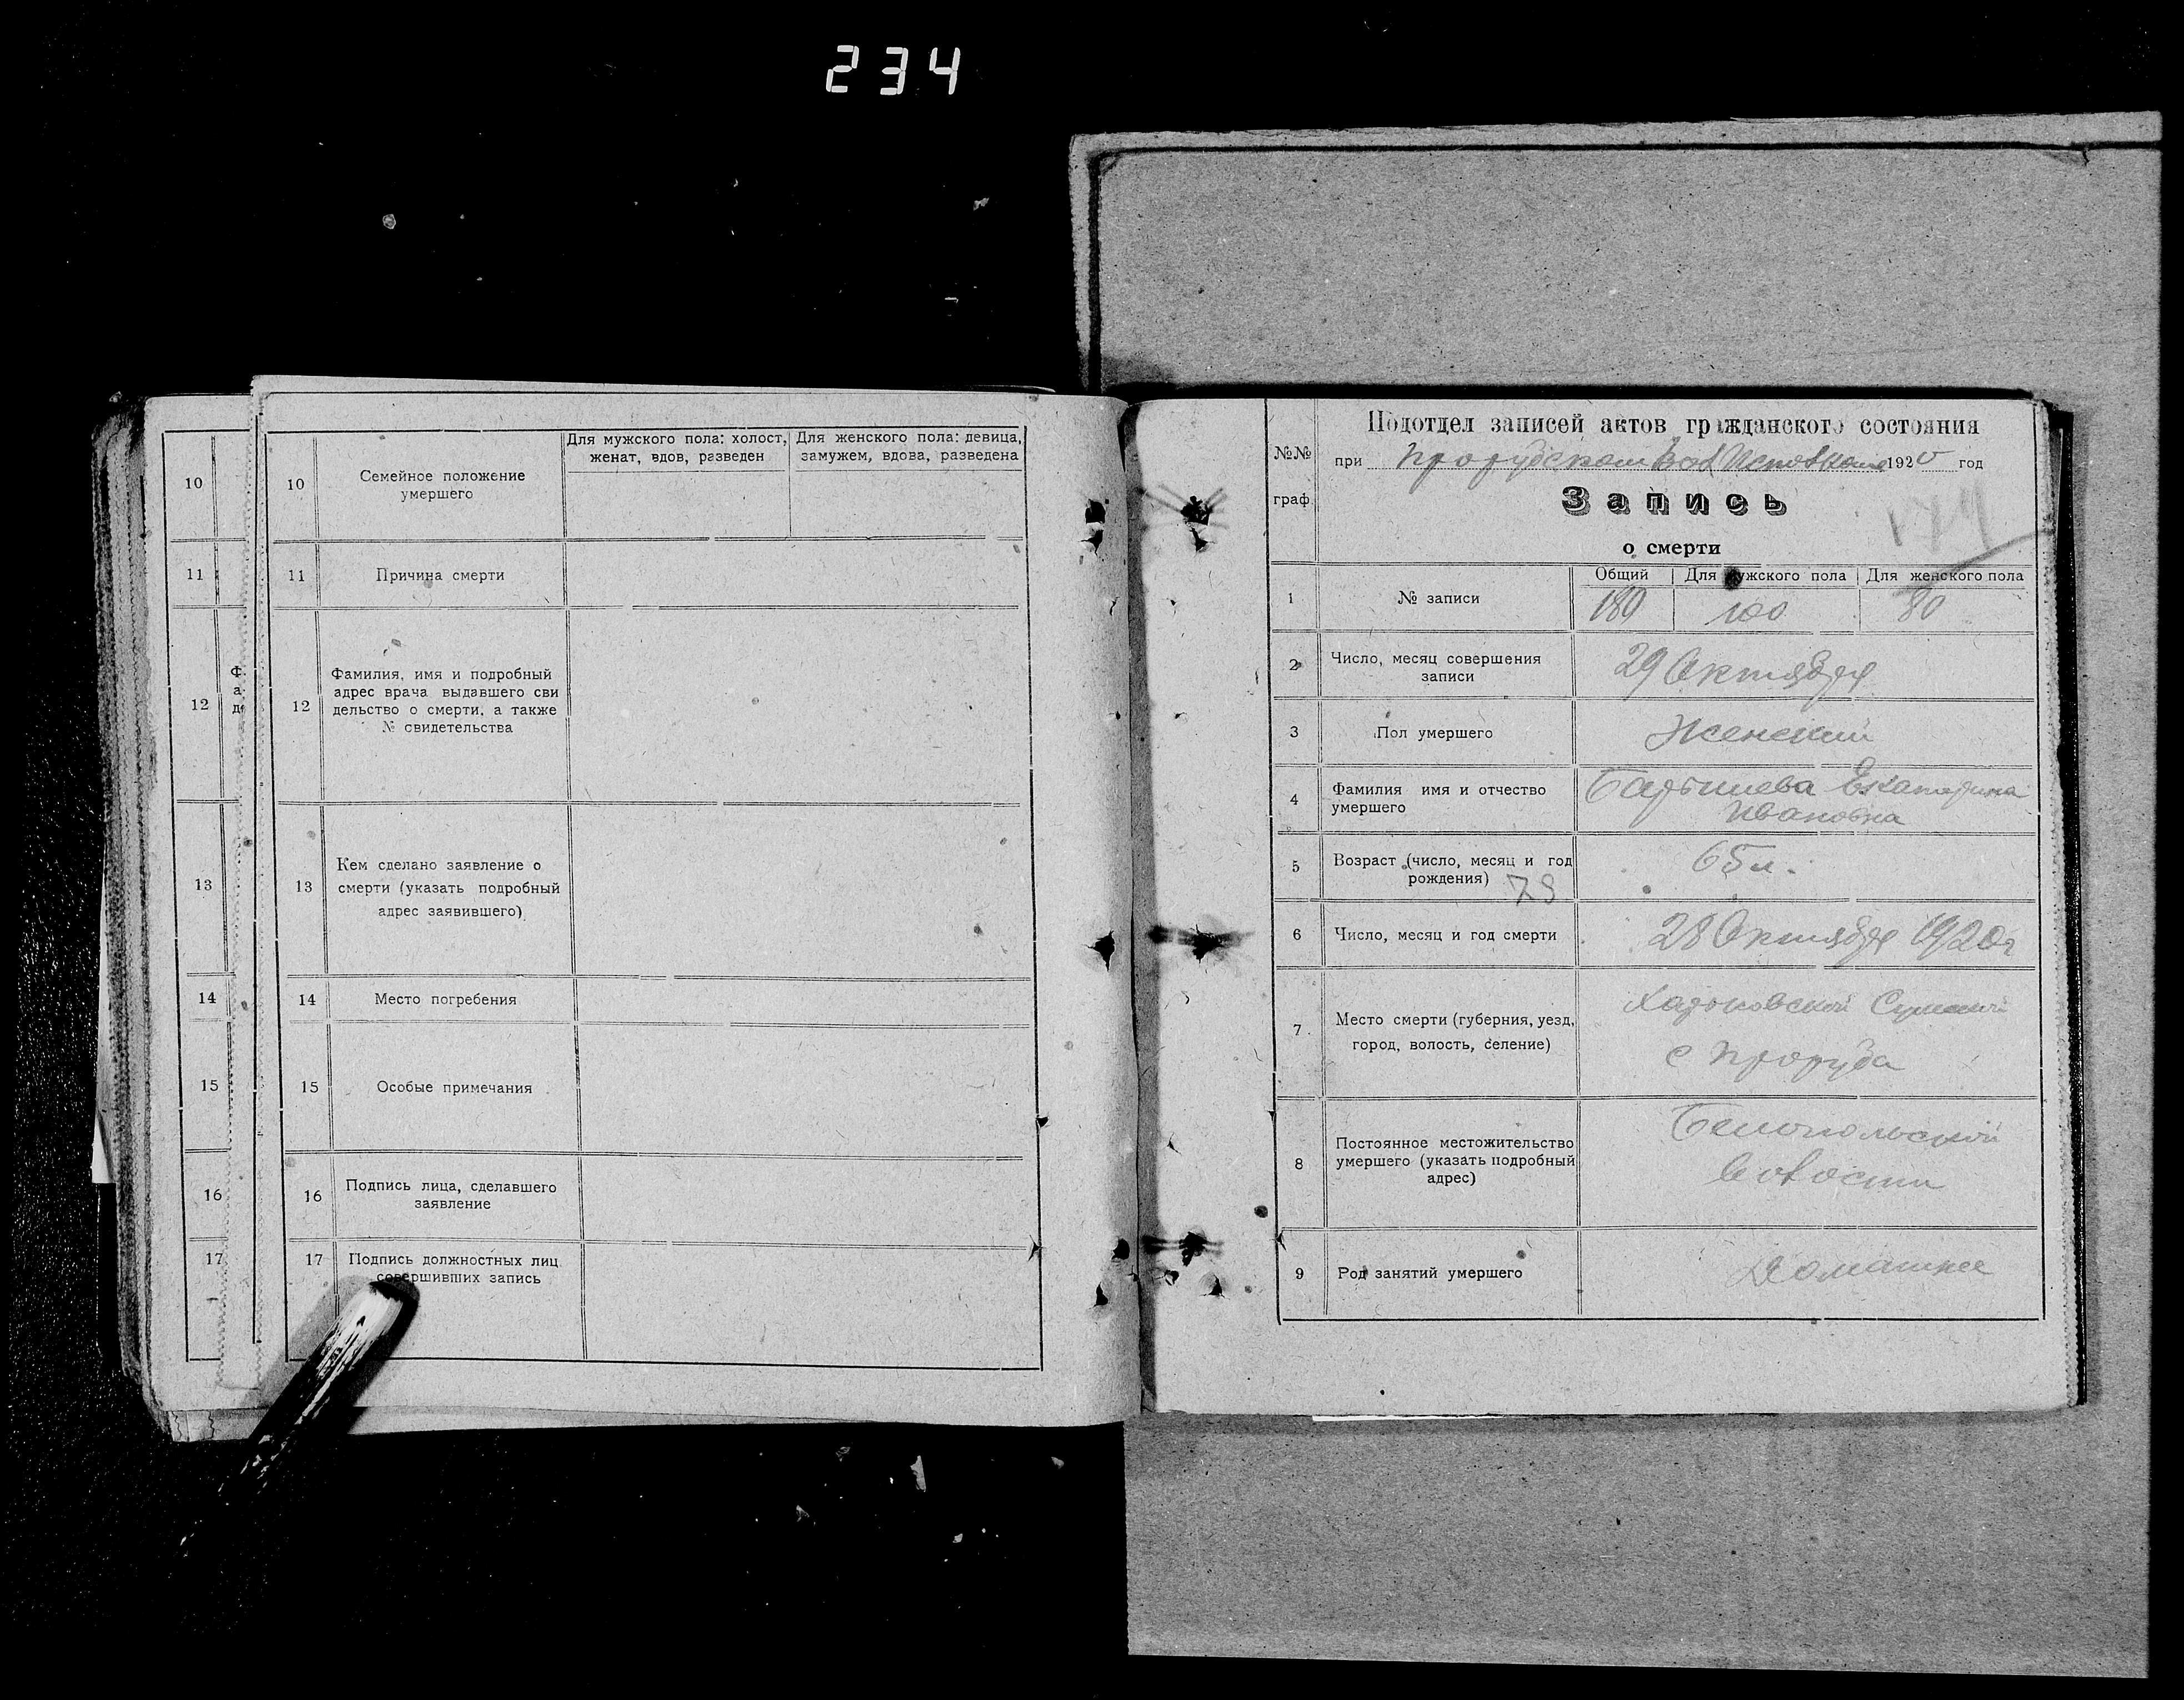 234
10
11
12
Ф.
а
де
13
14
15
16
17
10
Семейное положение
умершего
Для мужского пола: холост,
женат, вдов, разведен
Для женского пола: девица,
замужем, вдова, разведена
11
Причина смерти
12
Фамилия, имя и подробный
адрес врача выдавшего сви
дельство о смерти, а также
№ свидетельства
13
Кем сделано заявление о
смерти (указать подробный
адрес заявившего)
14
Место погребения
15
Особые примечания
16
Подпись лица, сделавшего
заявление
17
Подпись должностных лиц
совершивших запись
№№
граф.
Подотдел записей актов гражданского состояния
при Прорубском Вол Исполкоме 1920 год
Запись
174
о смерти
Общий
Для мужского пола
Для женского пола
1
№ записи
180
100
80
2
Число, месяц совершения
записи
29 Октября
3
Пол умершего
Женский
4
Фамилия имя и отчество
умершего
Барышева Екатерина
Ивановна
5
Возраст (число, месяц и год
рождения)
65 л.
6
Число, месяц и год смерти
28 Октября 1920 г
7
Место смерти (губерния, уезд,
город, волость, селение)
Харьковской Сумской
с Проруба
8
Постоянное местожительство
умершего (указать подробный
адрес)
Белопольской
волости
9
Род занятий умершего
Домашнее